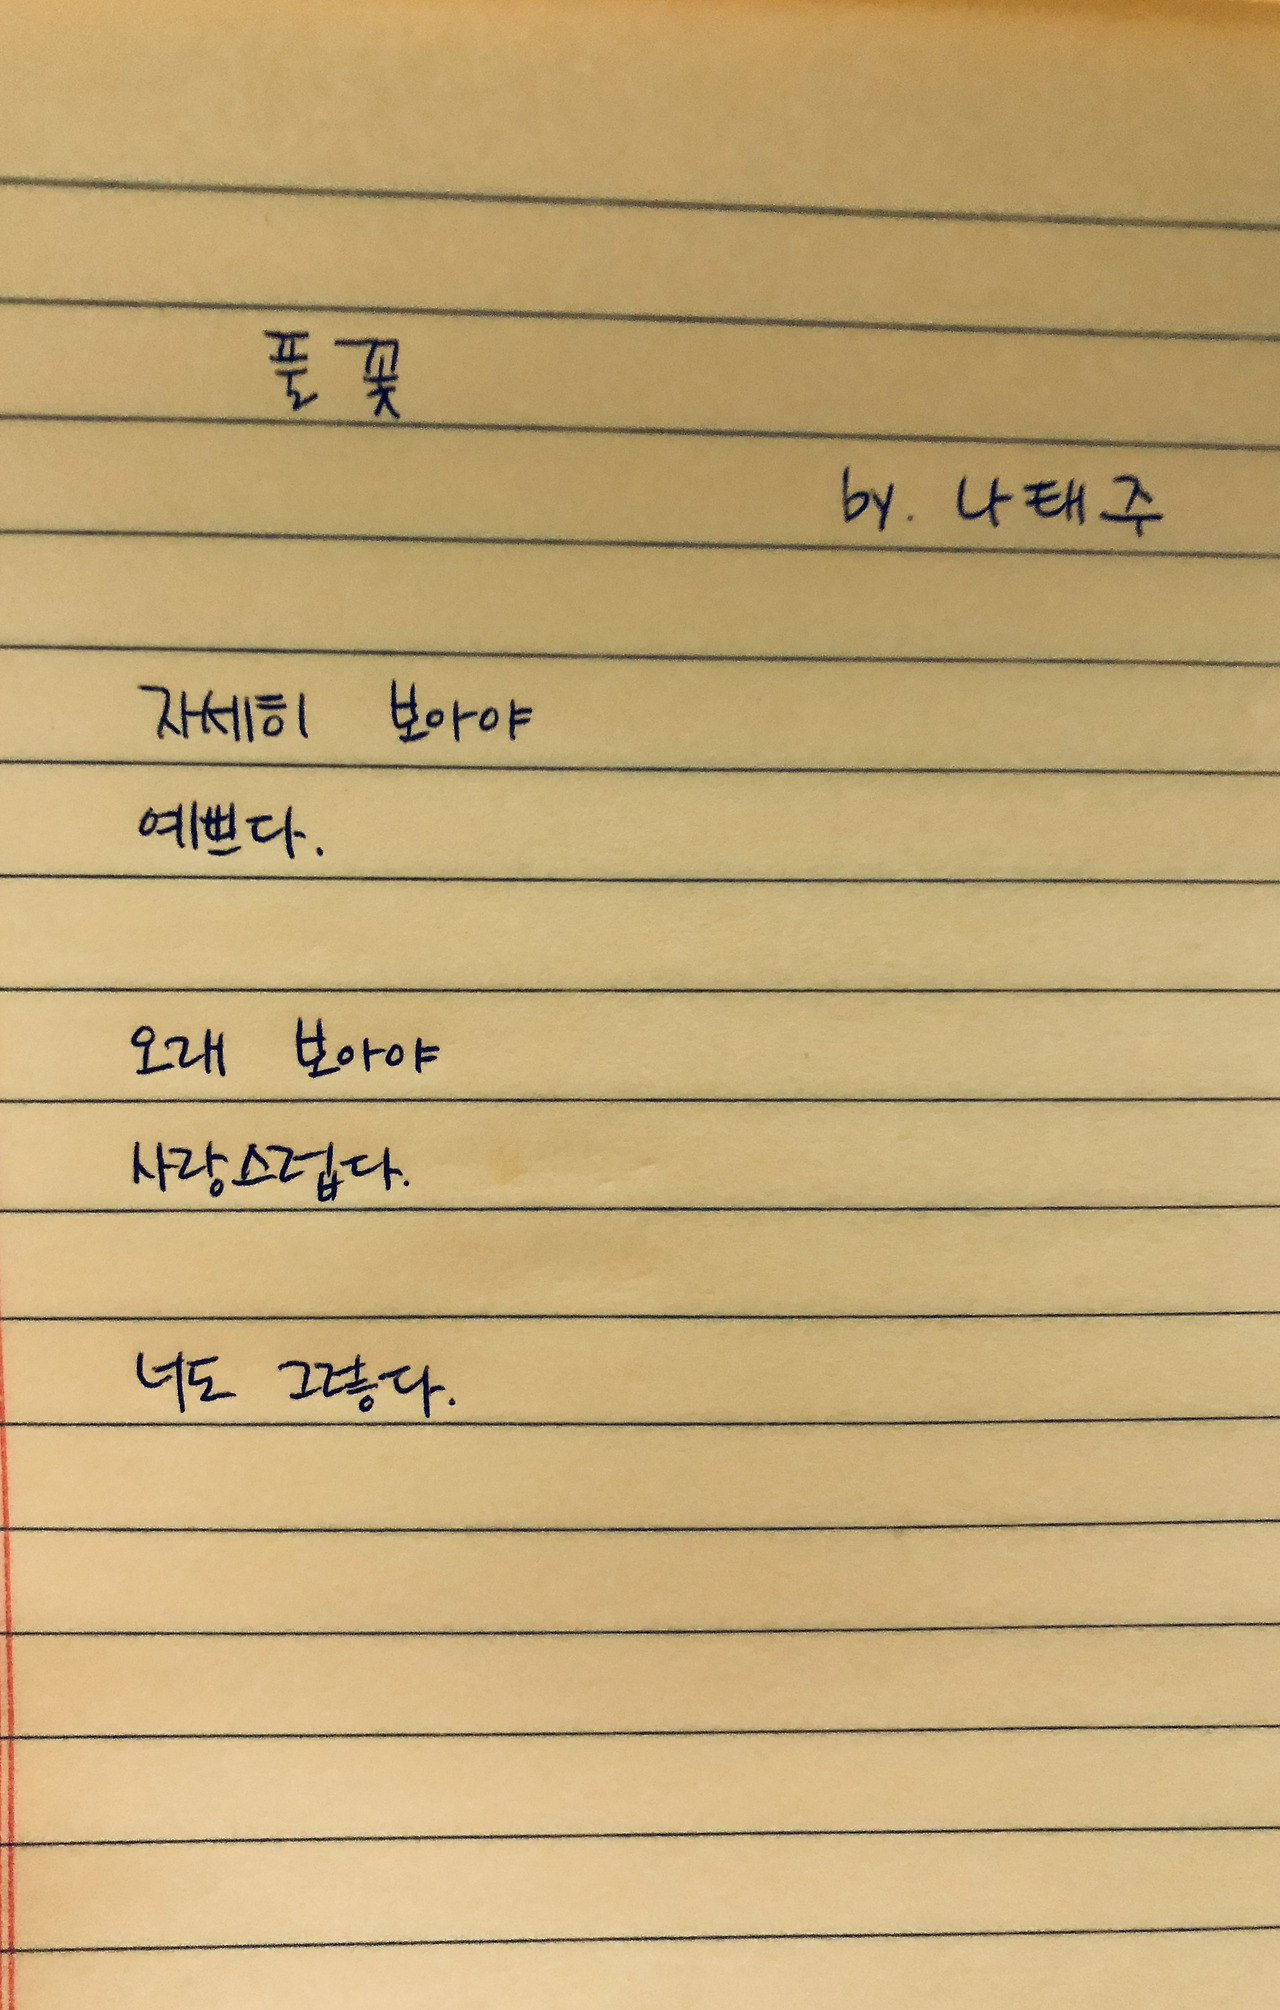 풀꽃
by. 나태주
자세히 보아야
예쁘다.
오래 보아야
사랑스럽다.
너도 그렇다.